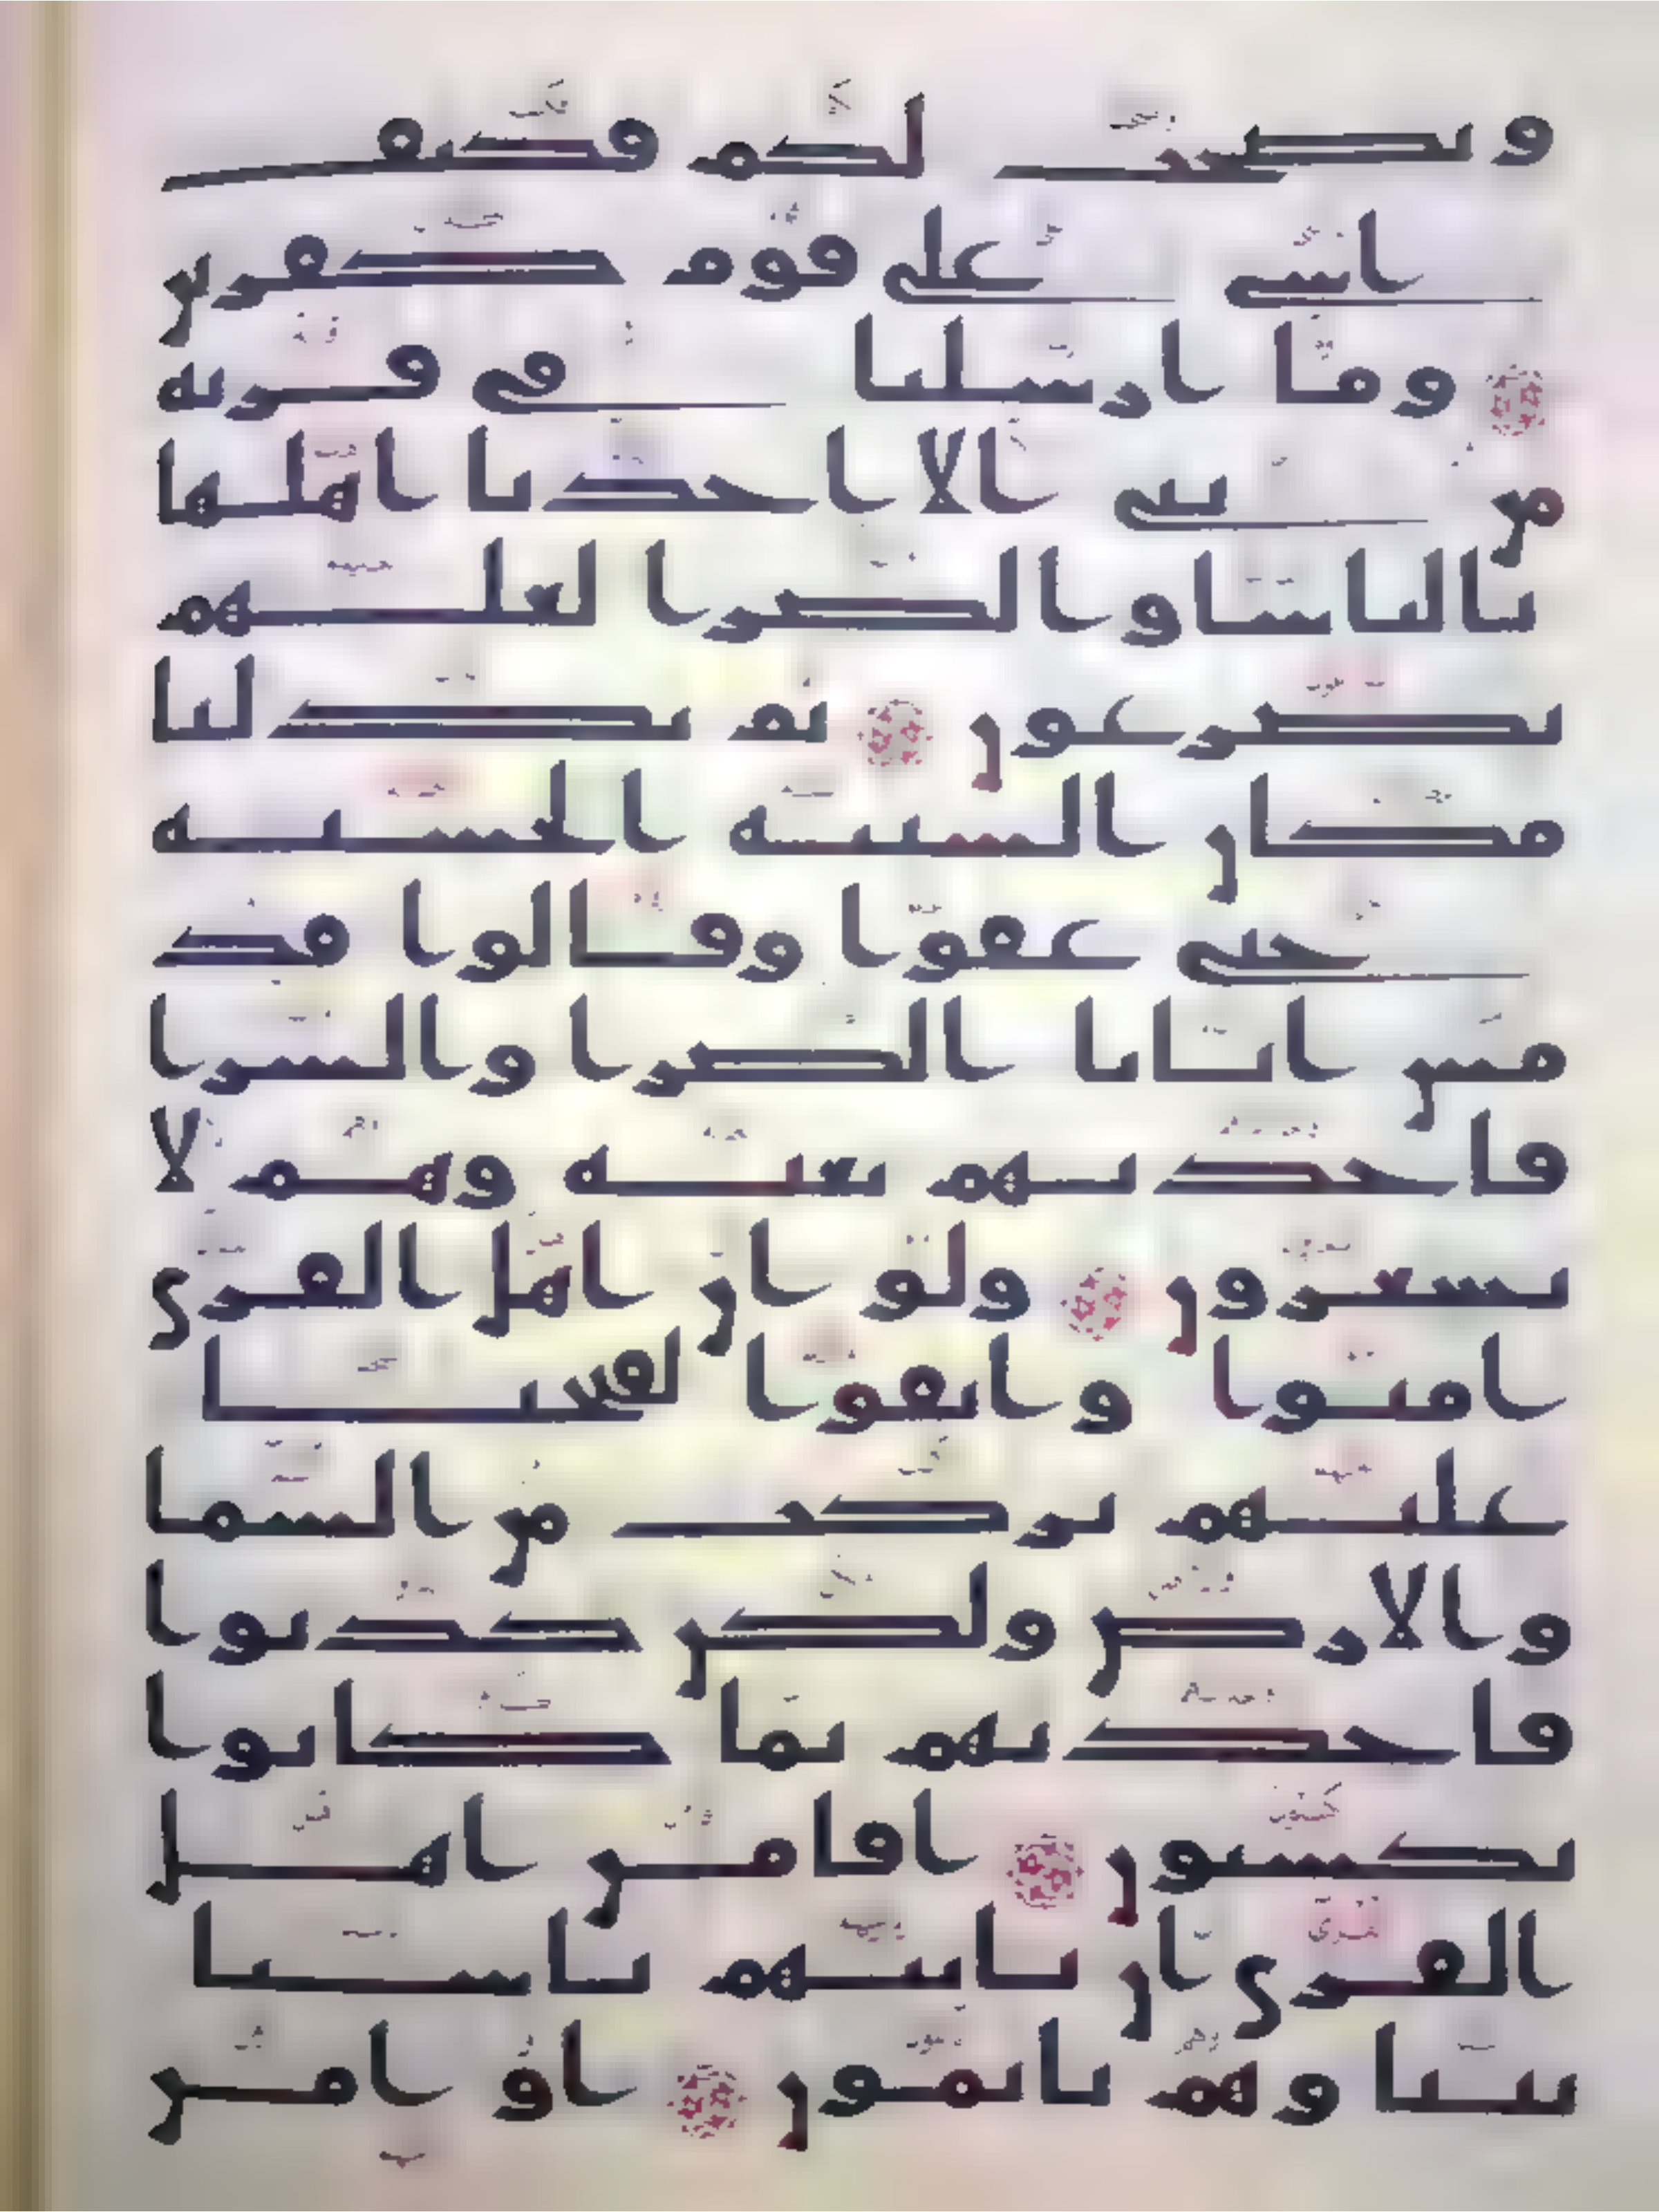 ونصحت لكم فكيف
اسى على قوم كفرين
وما ارسلنا في قرية
من نبي الا اخذنا اهلها
بالباسا والضرا لعلهم
يضرعون ثم بدلنا
مكان السيئة الحسنة
حتى عفوا وقالوا قد
مس اباءنا الضرا والسرا
فاخذنهم بغتة وهم لا
يشعرون ولو ان اهل القرى
امنوا واتقوا لفتحنا
عليهم بركت من السما
والارض ولكن كذبوا
فاخذنهم بما كانوا
يكسبون افامن اهل
القرى ان ياتيهم باسنا
بيتا وهم نائمون او امن